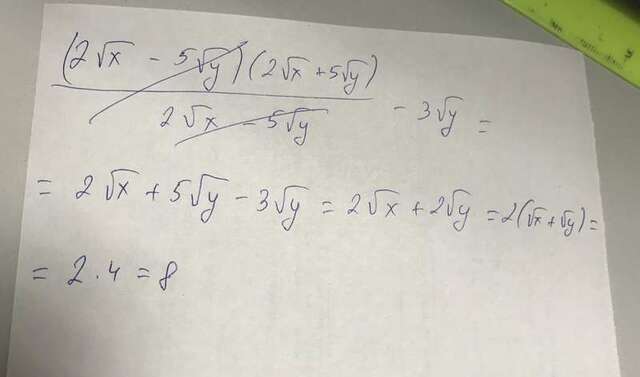 (2√x - 5√y)(2√x + 5√y)
2√x - 5√y
- 3√y =
= 2√x + 5√y - 3√y = 2√x + 2√y = 2(√x + √y) =
= 2 · 4 = 8